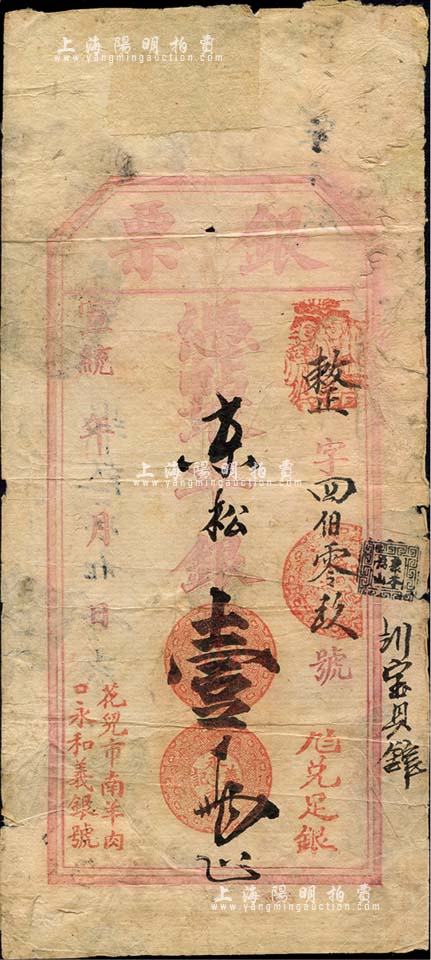 上海陽明拍賣
www.yangmingauction.com
銀票
整字四佰零玖號
憑票取銀
京松壹兩正
宣統 年 月 日
估兌足銀
花兒市南羊肉
口永和義銀號
上海陽明拍賣
www.yangmingauction.com
上海陽明拍賣
www.yangmingauction.com